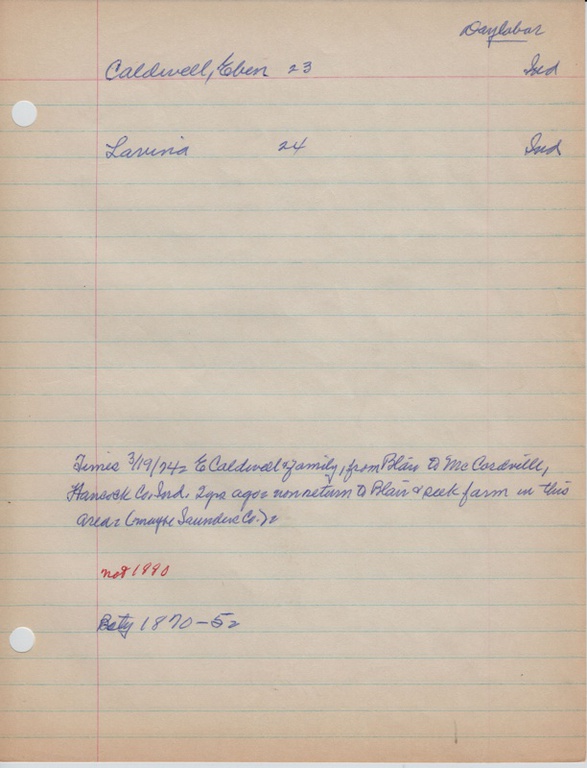 Daylabor
Caldwell, Eben 23 Ind
Lavina 24 Ind
Times 3/19/74= E Caldwell & family, from Blair to McCordville,
Hancock Co. Ind. 2 yrs ago= now return to Blair & seek farm in this
area= (maybe Saunders Co.)=
not 1880
1870-5=